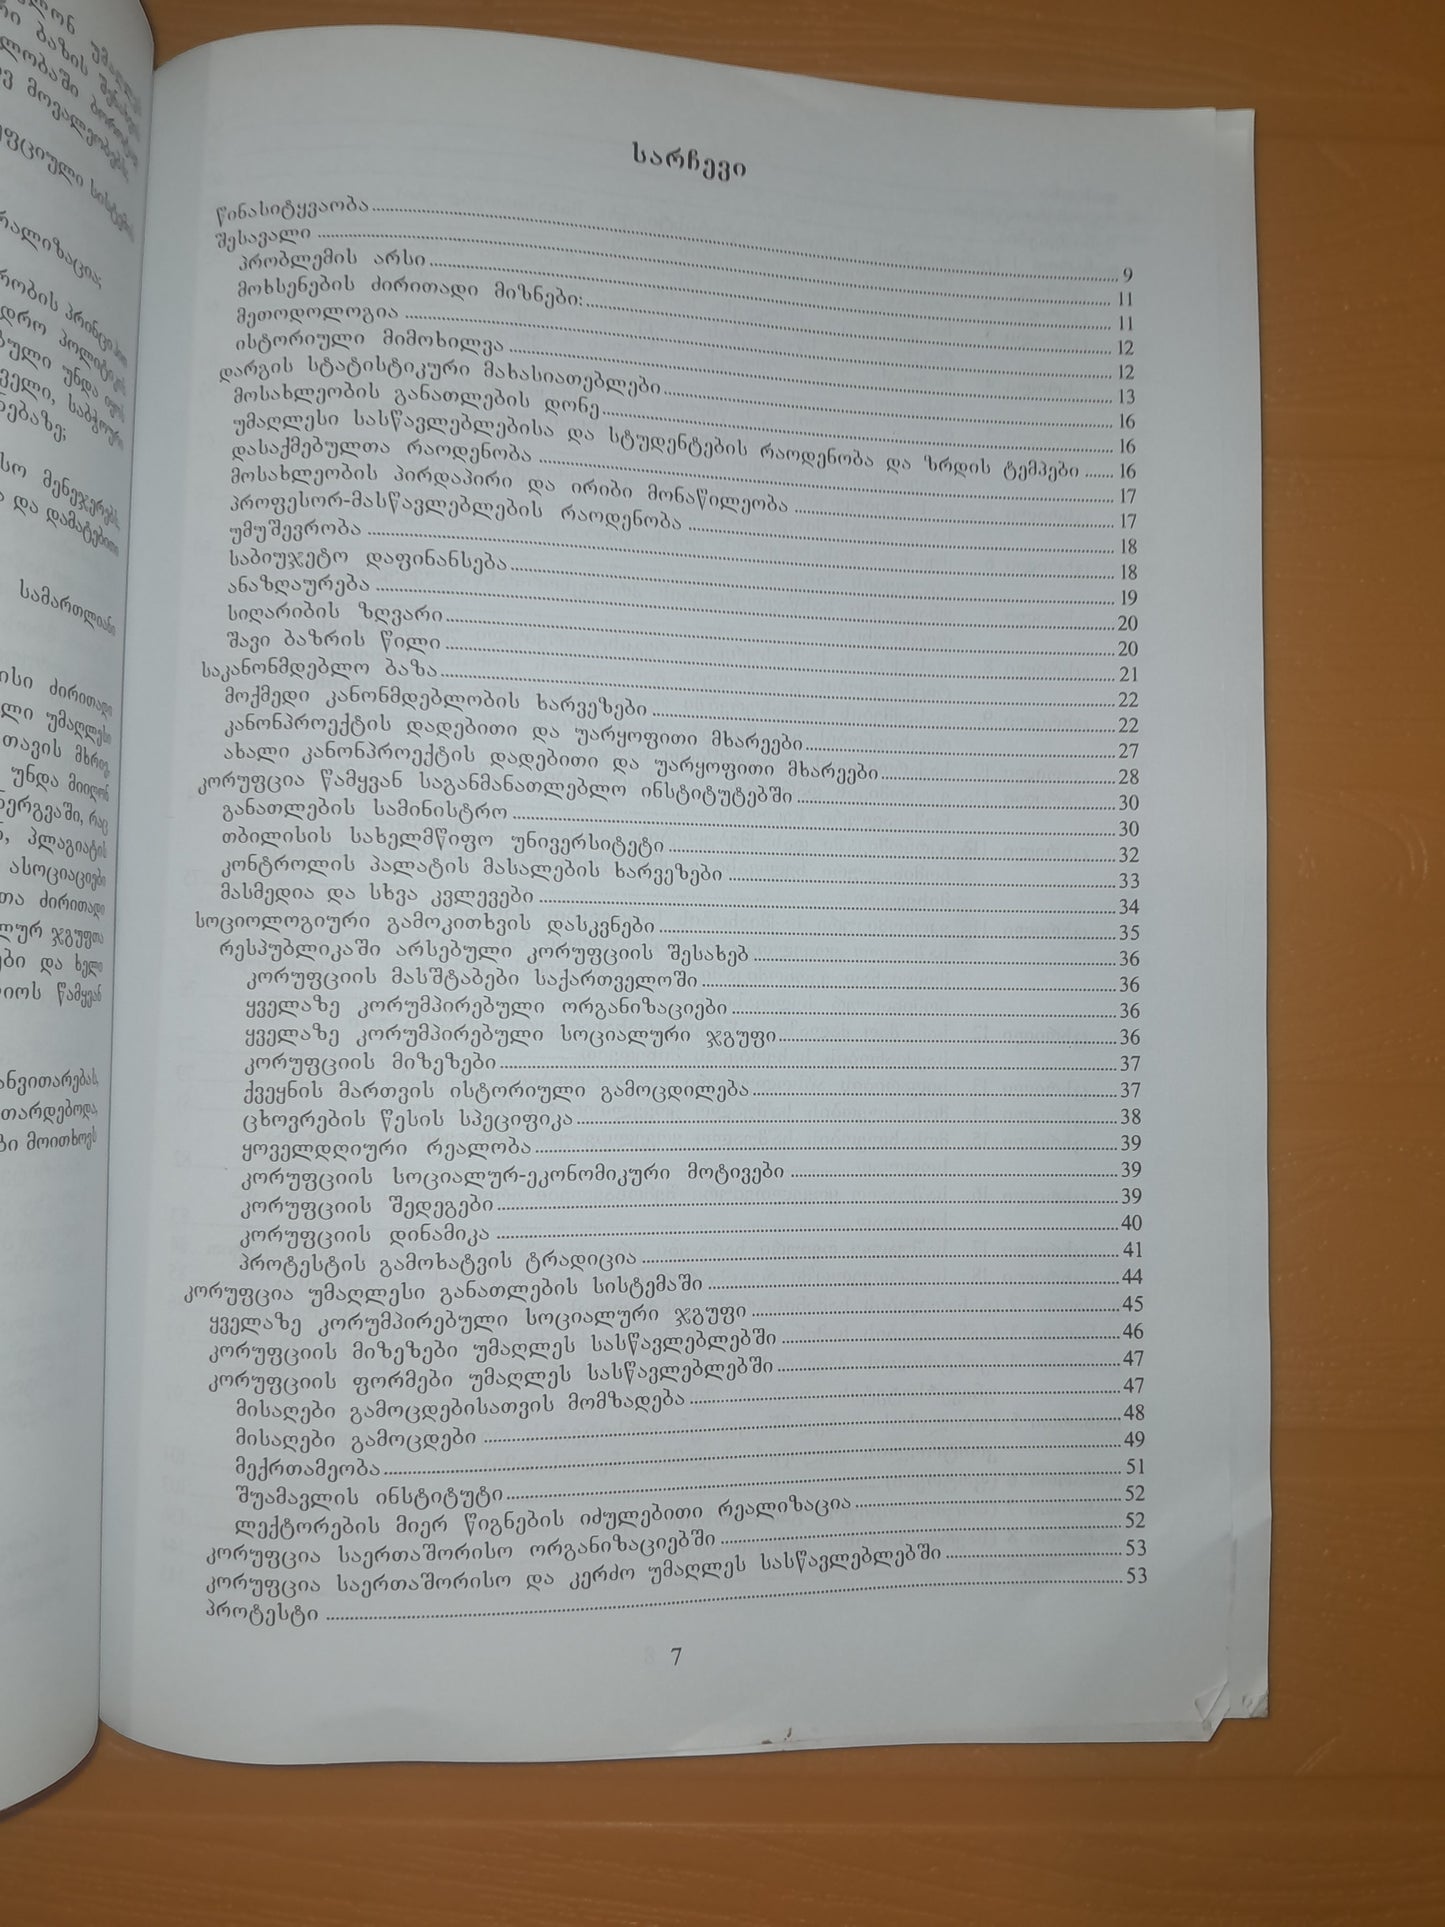 უმაღლეს
ბაზის შენახვის
მოვალეობებს,
სისტემის
პრინციპით
პოლიტიკის
უნდა იყოს
საბჭოური
მენეჯერებს,
და დამატებითი
სამართლიანი
ძირითადი
უმაღლესი
თავის მხრივ,
უნდა მიიღონ
რაც
პლაგიატის
ასოციაციები
ძირითადი
ჯგუფთა
და ხელი
წამყვან
მოითხოვს
სარჩევი
წინასიტყვაობა 9
შესავალი 11
პრობლემის არსი 11
მოხსენების ძირითადი მიზნები: 12
მეთოდოლოგია 12
ისტორიული მიმოხილვა 13
დარგის სტატისტიკური მახასიათებლები 16
მოსახლეობის განათლების დონე 16
უმაღლესი სასწავლებლებისა და სტუდენტების რაოდენობა და ზრდის ტემპები 16
დასაქმებულთა რაოდენობა 17
მოსახლეობის პირდაპირი და ირიბი მონაწილეობა 17
პროფესორ-მასწავლებლების რაოდენობა 18
უმუშევრობა 18
საბიუჯეტო დაფინანსება 19
ანაზღაურება 20
სიღარიბის ზღვარი 20
შავი ბაზრის წილი 21
საკანონმდებლო ბაზა 22
მოქმედი კანონმდებლობის ხარვეზები 22
კანონპროექტის დადებითი და უარყოფითი მხარეები 27
ახალი კანონპროექტის დადებითი და უარყოფითი მხარეები 28
კორუფცია წამყვან საგანმანათლებლო ინსტიტუტებში 30
განათლების სამინისტრო 30
თბილისის სახელმწიფო უნივერსიტეტი 32
კონტროლის პალატის მასალების ხარვეზები 33
მასმედია და სხვა კვლევები 34
სოციოლოგიური გამოკითხვის დასკვნები 35
რესპუბლიკაში არსებული კორუფციის შესახებ 36
კორუფციის მასშტაბები საქართველოში 36
ყველაზე კორუმპირებული ორგანიზაციები 36
ყველაზე კორუმპირებული სოციალური ჯგუფი 36
კორუფციის მიზეზები 37
ქვეყნის მართვის ისტორიული გამოცდილება 37
ცხოვრების წესის სპეციფიკა 38
ყოველდღიური რეალობა 39
კორუფციის სოციალურ-ეკონომიკური მოტივები 39
კორუფციის შედეგები 39
კორუფციის დინამიკა 40
პროტესტის გამოხატვის ტრადიცია 41
კორუფცია უმაღლესი განათლების სისტემაში 44
ყველაზე კორუმპირებული სოციალური ჯგუფი 45
კორუფციის მიზეზები უმაღლეს სასწავლებლებში 46
კორუფციის ფორმები უმაღლეს სასწავლებლებში 47
მისაღები გამოცდებისათვის მომზადება 47
მისაღები გამოცდები 48
მექრთამეობა 49
შუამავლის ინსტიტუტი 51
ლექტორების მიერ წიგნების იძულებითი რეალიზაცია 52
კორუფცია საერთაშორისო ორგანიზაციებში 52
კორუფცია საერთაშორისო და კერძო უმაღლეს სასწავლებლებში 53
პროტესტი 53
7